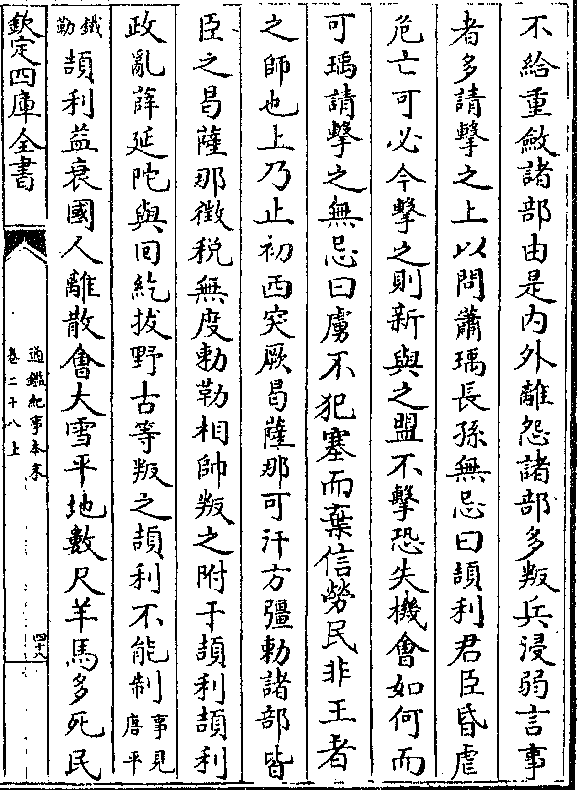 不給重斂諸部由是内外離怨諸部多叛兵浸弱言事
者多請擊之上以問蕭瑀長孫無忌曰頡利君臣昏虐
危亡可必今擊之則新與之盟不擊恐失機會如何而
可瑀請擊之無忌曰虜不犯塞而棄信勞民非王者
之師也上乃止初西突厥曷薩那可汗方彊勅諸部皆
臣之曷薩那徵稅無度勅勒相帥叛之附于頡利頡利
政亂薛延陀與回紇拔野古等叛之頡利不能制事見唐平
鐵勒頡利益衰國人離散會大雪平地數尺羊馬多死民
欽定四庫全書
通鑑紀事本末
卷二十八上
四十八